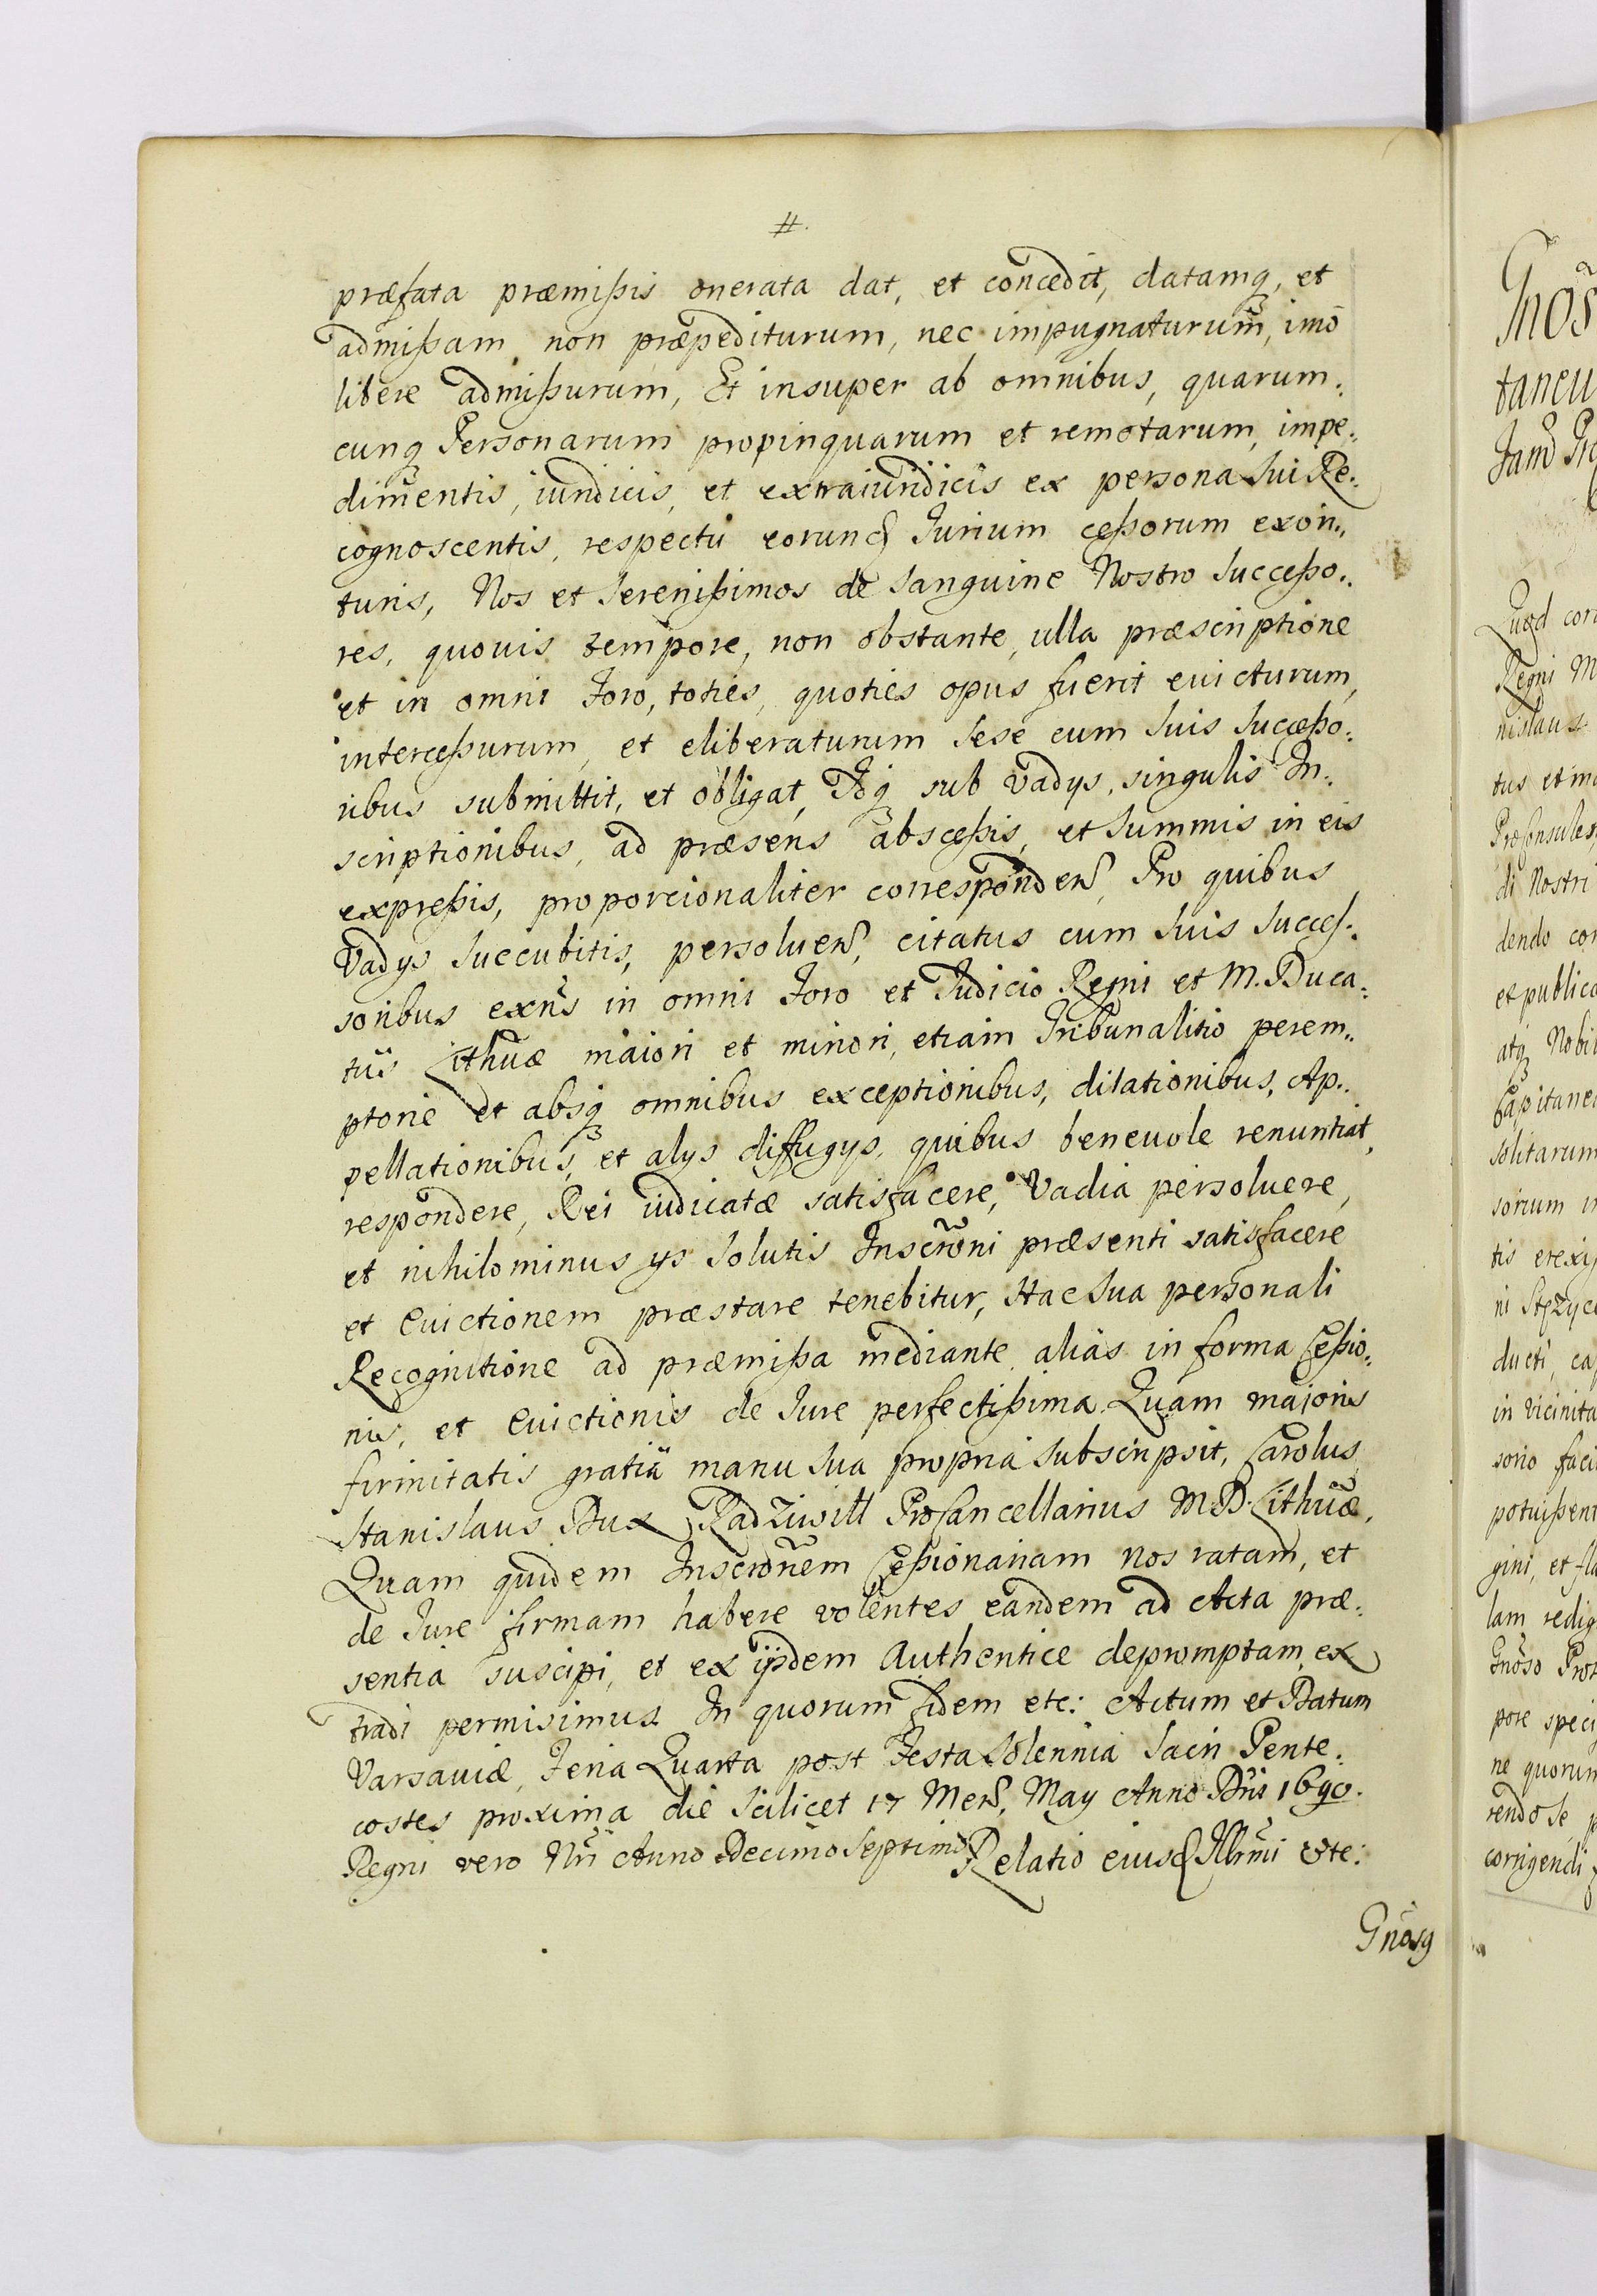 #.
præfata præmißis onerata dat, et concedit, datamq, et
admißam non præpediturum, nec impugnaturum, imo
libere admißurum, Et insuper ab omnibus, quarum:
cunq Personarum propinquarum et remotarum, impe:
dimentis, iuridicis, et extraiuridicis ex persona Sui Re:
cognoscentis, respectu eorund Iurium ceßorum exori:
turis, Nos et Serenißimos de Sanguine Nostro Succeßo:
res, quovis tempore, non obstante, ulla præscriptione
et in omni Foro, toties, quoties opus fuerit evicturum,
interceßurum, et eliberaturum Sese cum Suis Succeßo:
ribus submittit, et obligat, Idq sub Vadys, singulis In:
scriptionibus, ad præsens absceßis, et Summis in eis
expreßis, proporcionaliter corresponden, Pro quibus
Vadys Succubitis, persoluen, citatus cum Suis Succes:
soribus exns in omni Foro et Iudicio Regni et M. Duca:
tus Lithuæ maiori et minori, etiam Tribunalitio perem:
ptorie et absq omnibus exceptionibus, dilationibus, Ap:
pellationibus, et alys diffugys, quibus benevole renuntiat,
respondere, Rei iudicatæ satisfacere, Vadia persoluere,
et nihilominus ys Solutis Inscrõni præsenti satisfacere
et Evictionem præstare tenebitur, Hac Sua personali
Recognitione ad præmißa mediante alias in forma Ceßio:
nis, et Evictionis de Iure perfectißima. Quam majoris
firmitatis gratia manu Sua propria Subscripsit, Carolus
Stanislaus Dux Radziwill ProCancellarius M.D. Lithuæ.
Quam quidem Inscrõnem Ceßionariam nos ratam, et
de Iure firmam habere volentes eandem ad Acta præ:
sentia suscipi, et ex ijsdem Authentice depromptam ex
tradi permisimus. In quorum fidem etc: Actum et Datum
Varsaviæ, Feria Quarta post Festa Solennia Sacri Pente:
costes proxima die Scilicet 17 Mens, May Anno Dni 1690.
Regni vero Nri Anno Decimo Septimo. Relatio eiusd Illrmi &te:
Gnosq
Gnos
taneu
Quod cor
Regni M
nislaus
tus et m
di Nostri
dendo con
et publica
atq Nobil
Capitane
solitarum
sorium
ducti, ca
in vicinita
sorio faci
potuißent
gini, et fla
lam redig
Gnoso Pro
pore speci
ne quorum
rendo Se p
corrigendi